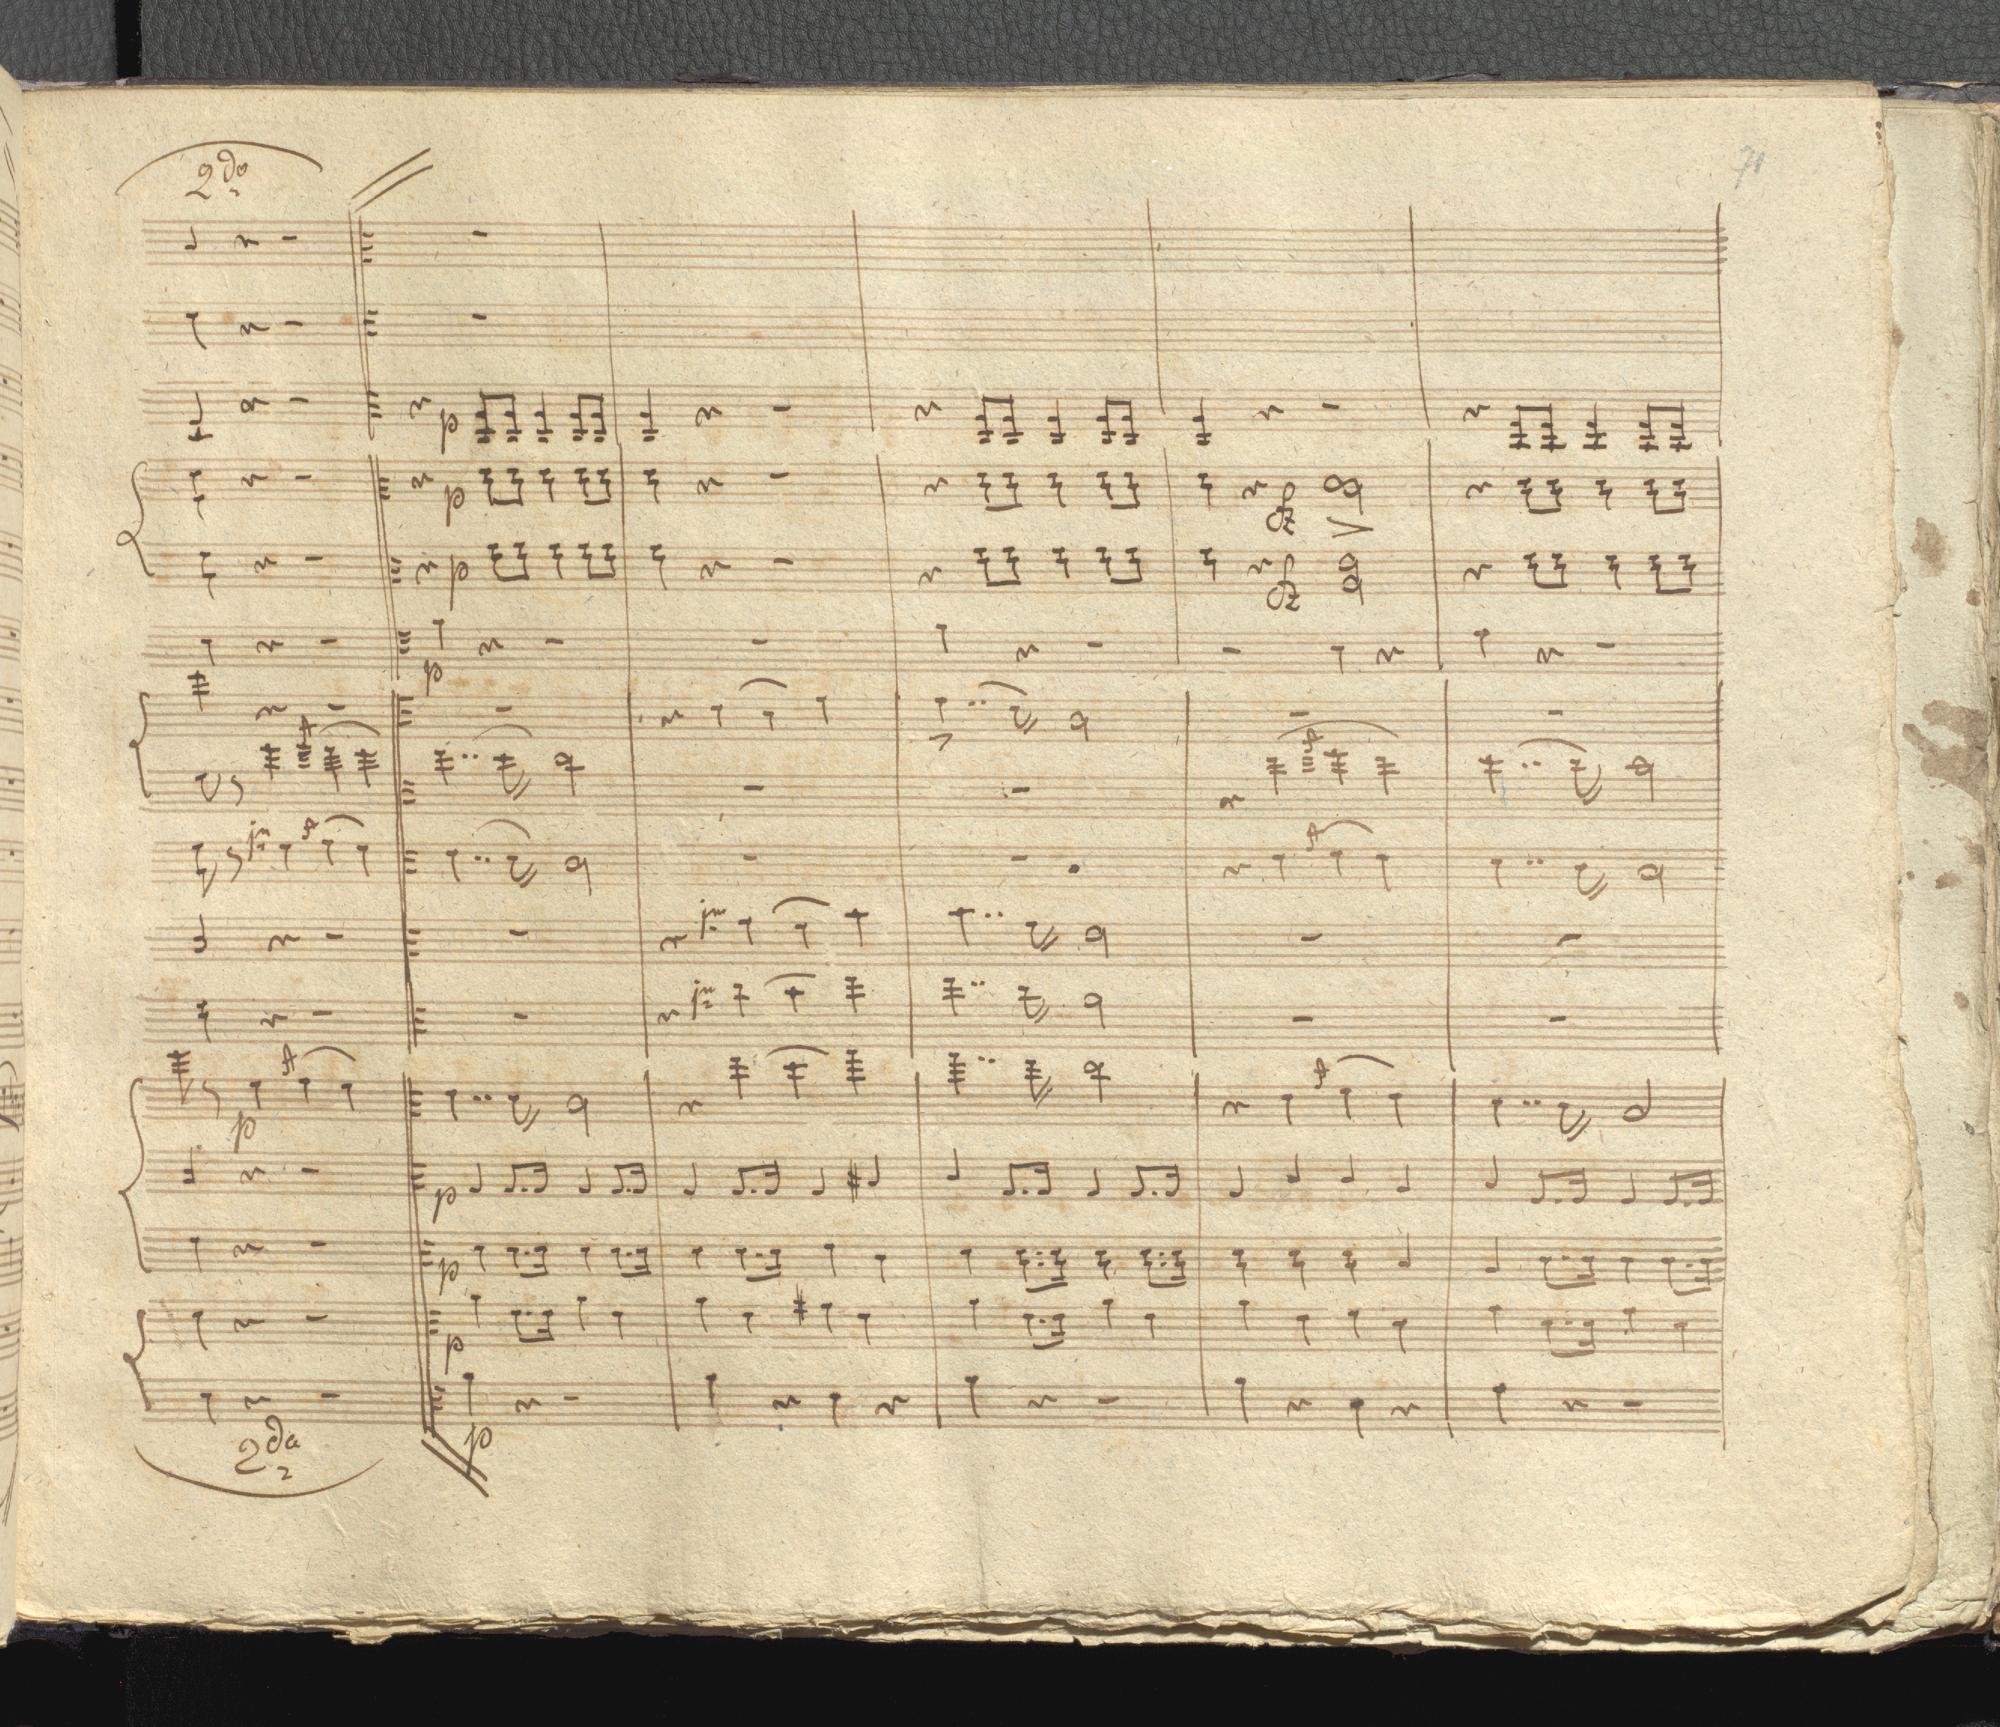 2do
71
p
p
fz
p
fz
p
p
p
p
p
p
2da